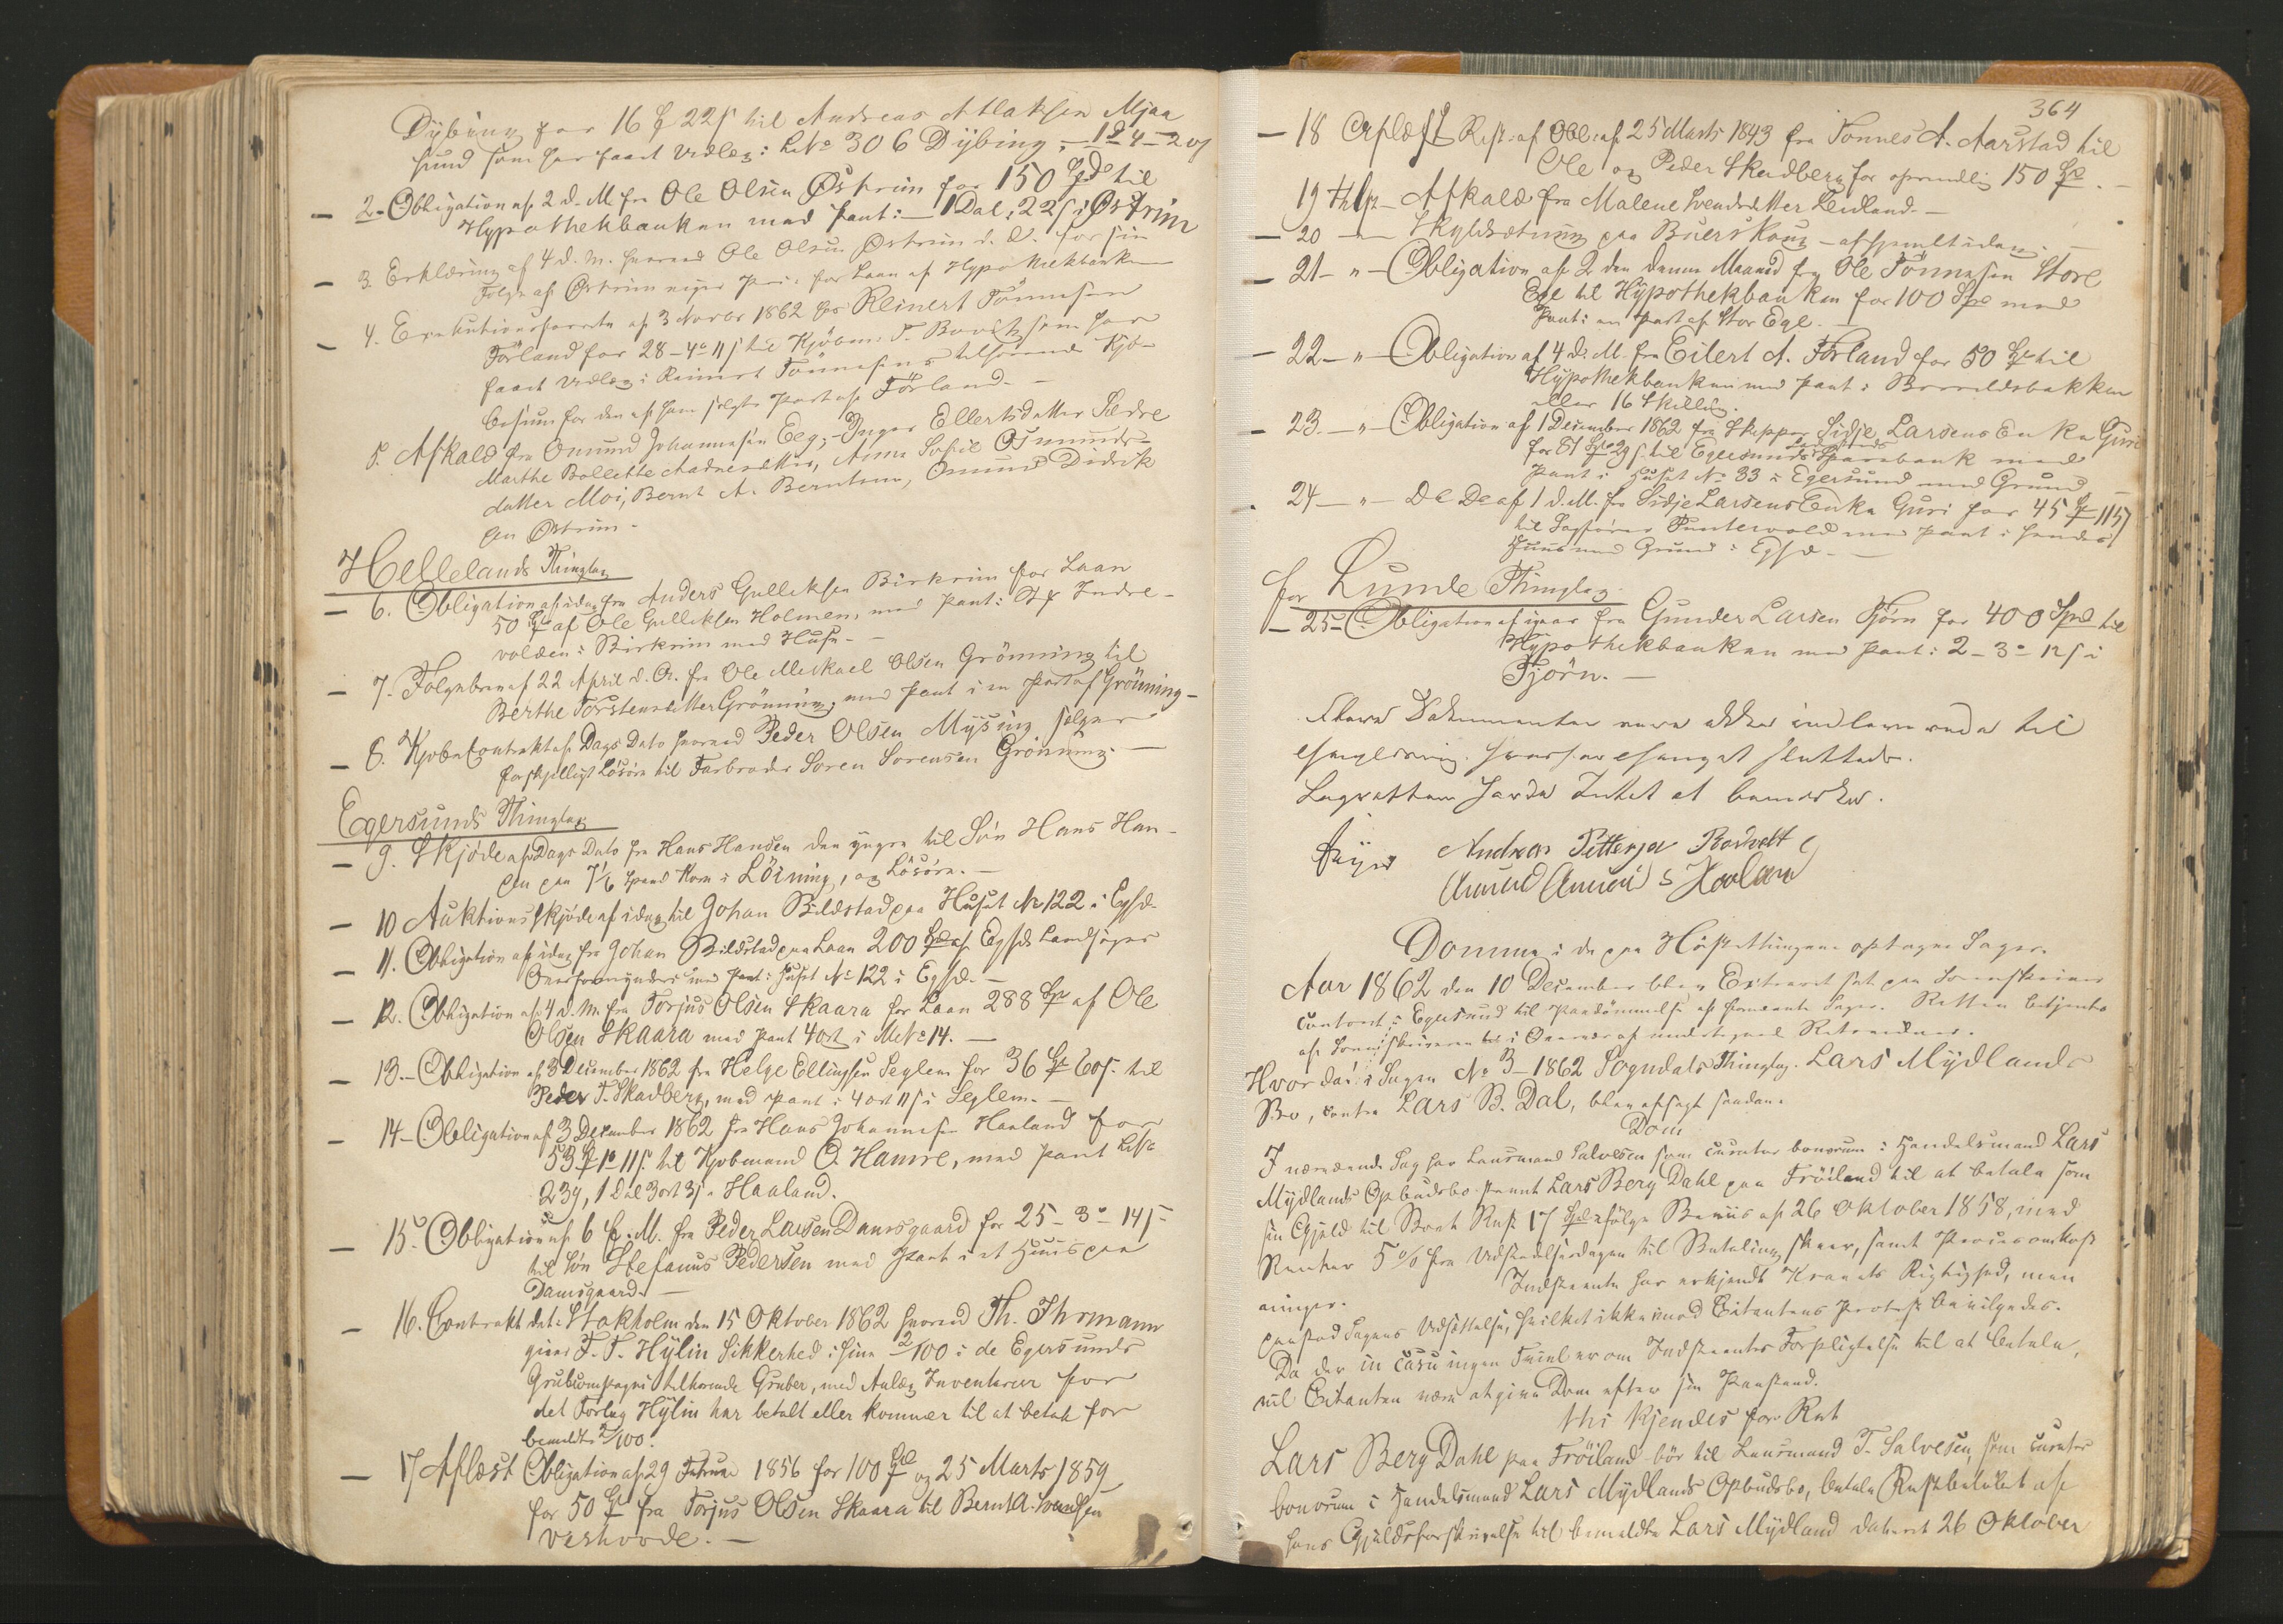 Dybing for 16 Spd 22 s til Andreas Atlaksen Mjaa
sund som har faaet Udlæg i LNo 306 Dybing,
2. Obligation af 2 d. M. fra Ole Olsen Østrem for 150 Spd til
Hypothekbanken med Pant: 1 Dal: 22 s i Østrim
3. Erklæring af 4 d. M. hvorved Ole Olsen Østrem
Følge af Østrim viger Pri: for Laan af Hypothekbanken
4. Executionsforretn af 3 Novbr 1862 hos Reinert Tönnesen
Förland for 28-4-11 s til Kjöbm. som har
faaet Udlæg i Reinert Tönnesens tilhörende Kjö-
besum for den af ham solgte Part af Förland.
5. Afkald fra Omund Johannesen Eeg, Inger Ellertsdatter Sædre
Marthe Bollette Aadnesdatter, Anne Sofie Osmunds-
datter Moi, Bernt A. Berntsen, Omund Didrik
sen Østrim.
Hellelands Thinglag
6. Obligation af idag fra Anders Gulleksen Birkrim for Laan
50 Spd af Ole Gulleksen Holmen, med Pant: Indre-
volden i Birkrim med Huse.
7. Folgebrev af 22 April d. A. fra Ole Mickael Olsen Grönning til
Berthe Torstensdatter Grönning, med Pant i en Part af Grönning
8. Kjöbekontrakt af Dags Dato hvorved Peder Olsen Mysing sælger
forskjelligt Lösöre til Farbroder Soren Sorensen Grönning.
Egersunds Thinglag
9. Skjöde af Dags Dato fra Hans Hansen den yngre til Sön Hans Han-
sen paa 7 1/6 Spand Korn i Löining, og Lösöre.
10 Auktionsskjöde af idag til Johan Bildstad paa Huset No 122 i Egsd.
11. Obligation af idag fra Johan Bildstad paa Laan 200 Spd af Egsds Landsogns
Overformynderi med Pant i Huset No 122 i Egsd.
12. Obligation af 4 d. M. fra Torjus Olsen Skaara for Laan 288 Sp af Ole
Olsen Skaara med Pant 4 ort i MNo 14.
13. Obligation af 3 December 1862 fra Helge Ellingsen Seglem for 36 Spd 60 s. til
Peder T. Skadberg, med Pant i 4 ort 11 s i Seglem.
14 Obligation af 3 December 1862 fra Hans Johannesen Haaland for
53 Spd 1 o 11 s. til Kjobmand O. Hamre, med Pant LNo
239, 1 Dal 3 ort 3 s i Haaland.
15. Obligation af 6 f. M. fra Peder Larsen Damsgaard for 25-3-14 s
til Sön Stefanus Pedersen med Pant i et Huus paa
Damsgaard.
16. Contrakt dat: Stokholm den 15 Oktober 1862 hvorved Th. Ihrmann
giver F. T. Hylin Sikkerhed i sine 2/100 i de Egersunds
Grubcompagni tilhorende Gruber, med Anlæg Inventarier for
det Forlag Hylin har betalt eller kommer til at betale for
bemeldte 2/100.
17 Aflæst Obligation af 29 Februar 1856 for 100 Spd og 25 Marts 1859
for 50 Spd fra Torjus Olsen Skaara til Bernt A. Svendsen
Veshovde.
364
18 Aflæst Rest: af Obl: af 25 Marts 1843 fra Tonnes A. Aarstad til
Ole og Peder Skadberg for oprindelig 150 Spd.
19 Afkald fra Malene Svendsdatter Leidland.
20 Skyldsætning paa
21 " Obligation af 2 den denne Maaned fra Ole Tönnesen Store
Ege til Hypothekbanken for 100 Spd med
Pant: en Part af Stor Ege.
22 " Obligation af 4 d. M. fra Eilert A. Förland for 50 Spd til
Hypothekbanken med Pant:
eller 16 Skilling.
23 " Obligation af 1 December 1862 fra Skipper Sidje Larsens Enke Guri
for 81 Spd 29 s. til Egersunds Landsogns Sparebank med
Pant i Huset No 33 i Egersund med Grund
24 " Do Do af 1 d. M. fra Sidje Larsens Enke Guri for 45 Spd 115 s
til Sagförer Puntervold med Pant i hendes
Huus med Grund i Egsd.
for Lunde Thinglag
25 Obligation af igaar fra Gunder Larsen Tjörn for 400 Spd til
Hypothekbanken med Pant: 2-3-12 s i
Tjörn.
Flere Dokumenter vare ikke indleverede til
thinglæsning. hvorfor thinget sluttede.
Lagretten havde Intet at bemærke.
Feyer Andreas Pettersen
Domme i de paa Höstthingene optagne Sager.
Aar 1862 den 10 December blev Extraret sat paa Sorenskriver
Contoret i Egersund til Paadömmelse af Sager. Retten betjentes
af Sorenskriveren i Overvær af undertegnede Retsvidner.
Hvor da: i Sagen No 3-1862 Sogndals Thinglag. Lars Mydlands
Bo, contra Lars B. Dal, blev afsagt saadan
Dom
I nærværende Sag har Lensmand Salvesen som curator bonorum i Handelsmand Lars
Mydlands Opbudsbo stevnt Lars Berg Dahl paa Fröiland til at betale som
sin Gjæld til Boet Rest 17 Spd ifölge Beviis af 26 Oktober 1858, med
Renter 5 % fra Udstedelsesdagen til Betaling skeer, samt Procesomkost-
ninger. Indstevnte har erkjendt Kravets Rigtighed, men
paastod Sagens Udsættelse, hvilket ikke imod Citantens Protest bevilgedes.
Da der in casu ingen Tvivl er om Indstevntes Forpligtelse til at betale,
vil Citanten være at give Dom efter sin Paastand.
thi kjendes for Ret
Lars Berg Dahl paa Fröiland bör til Lensmand T. Salvesen, som curator
bonorum i Handelsmand Lars Mydlands Opbudsbo, betale Restbelöbet af
hans Gjældsforskrivelse til bemeldte Lars Mydland dateret 26 Oktober